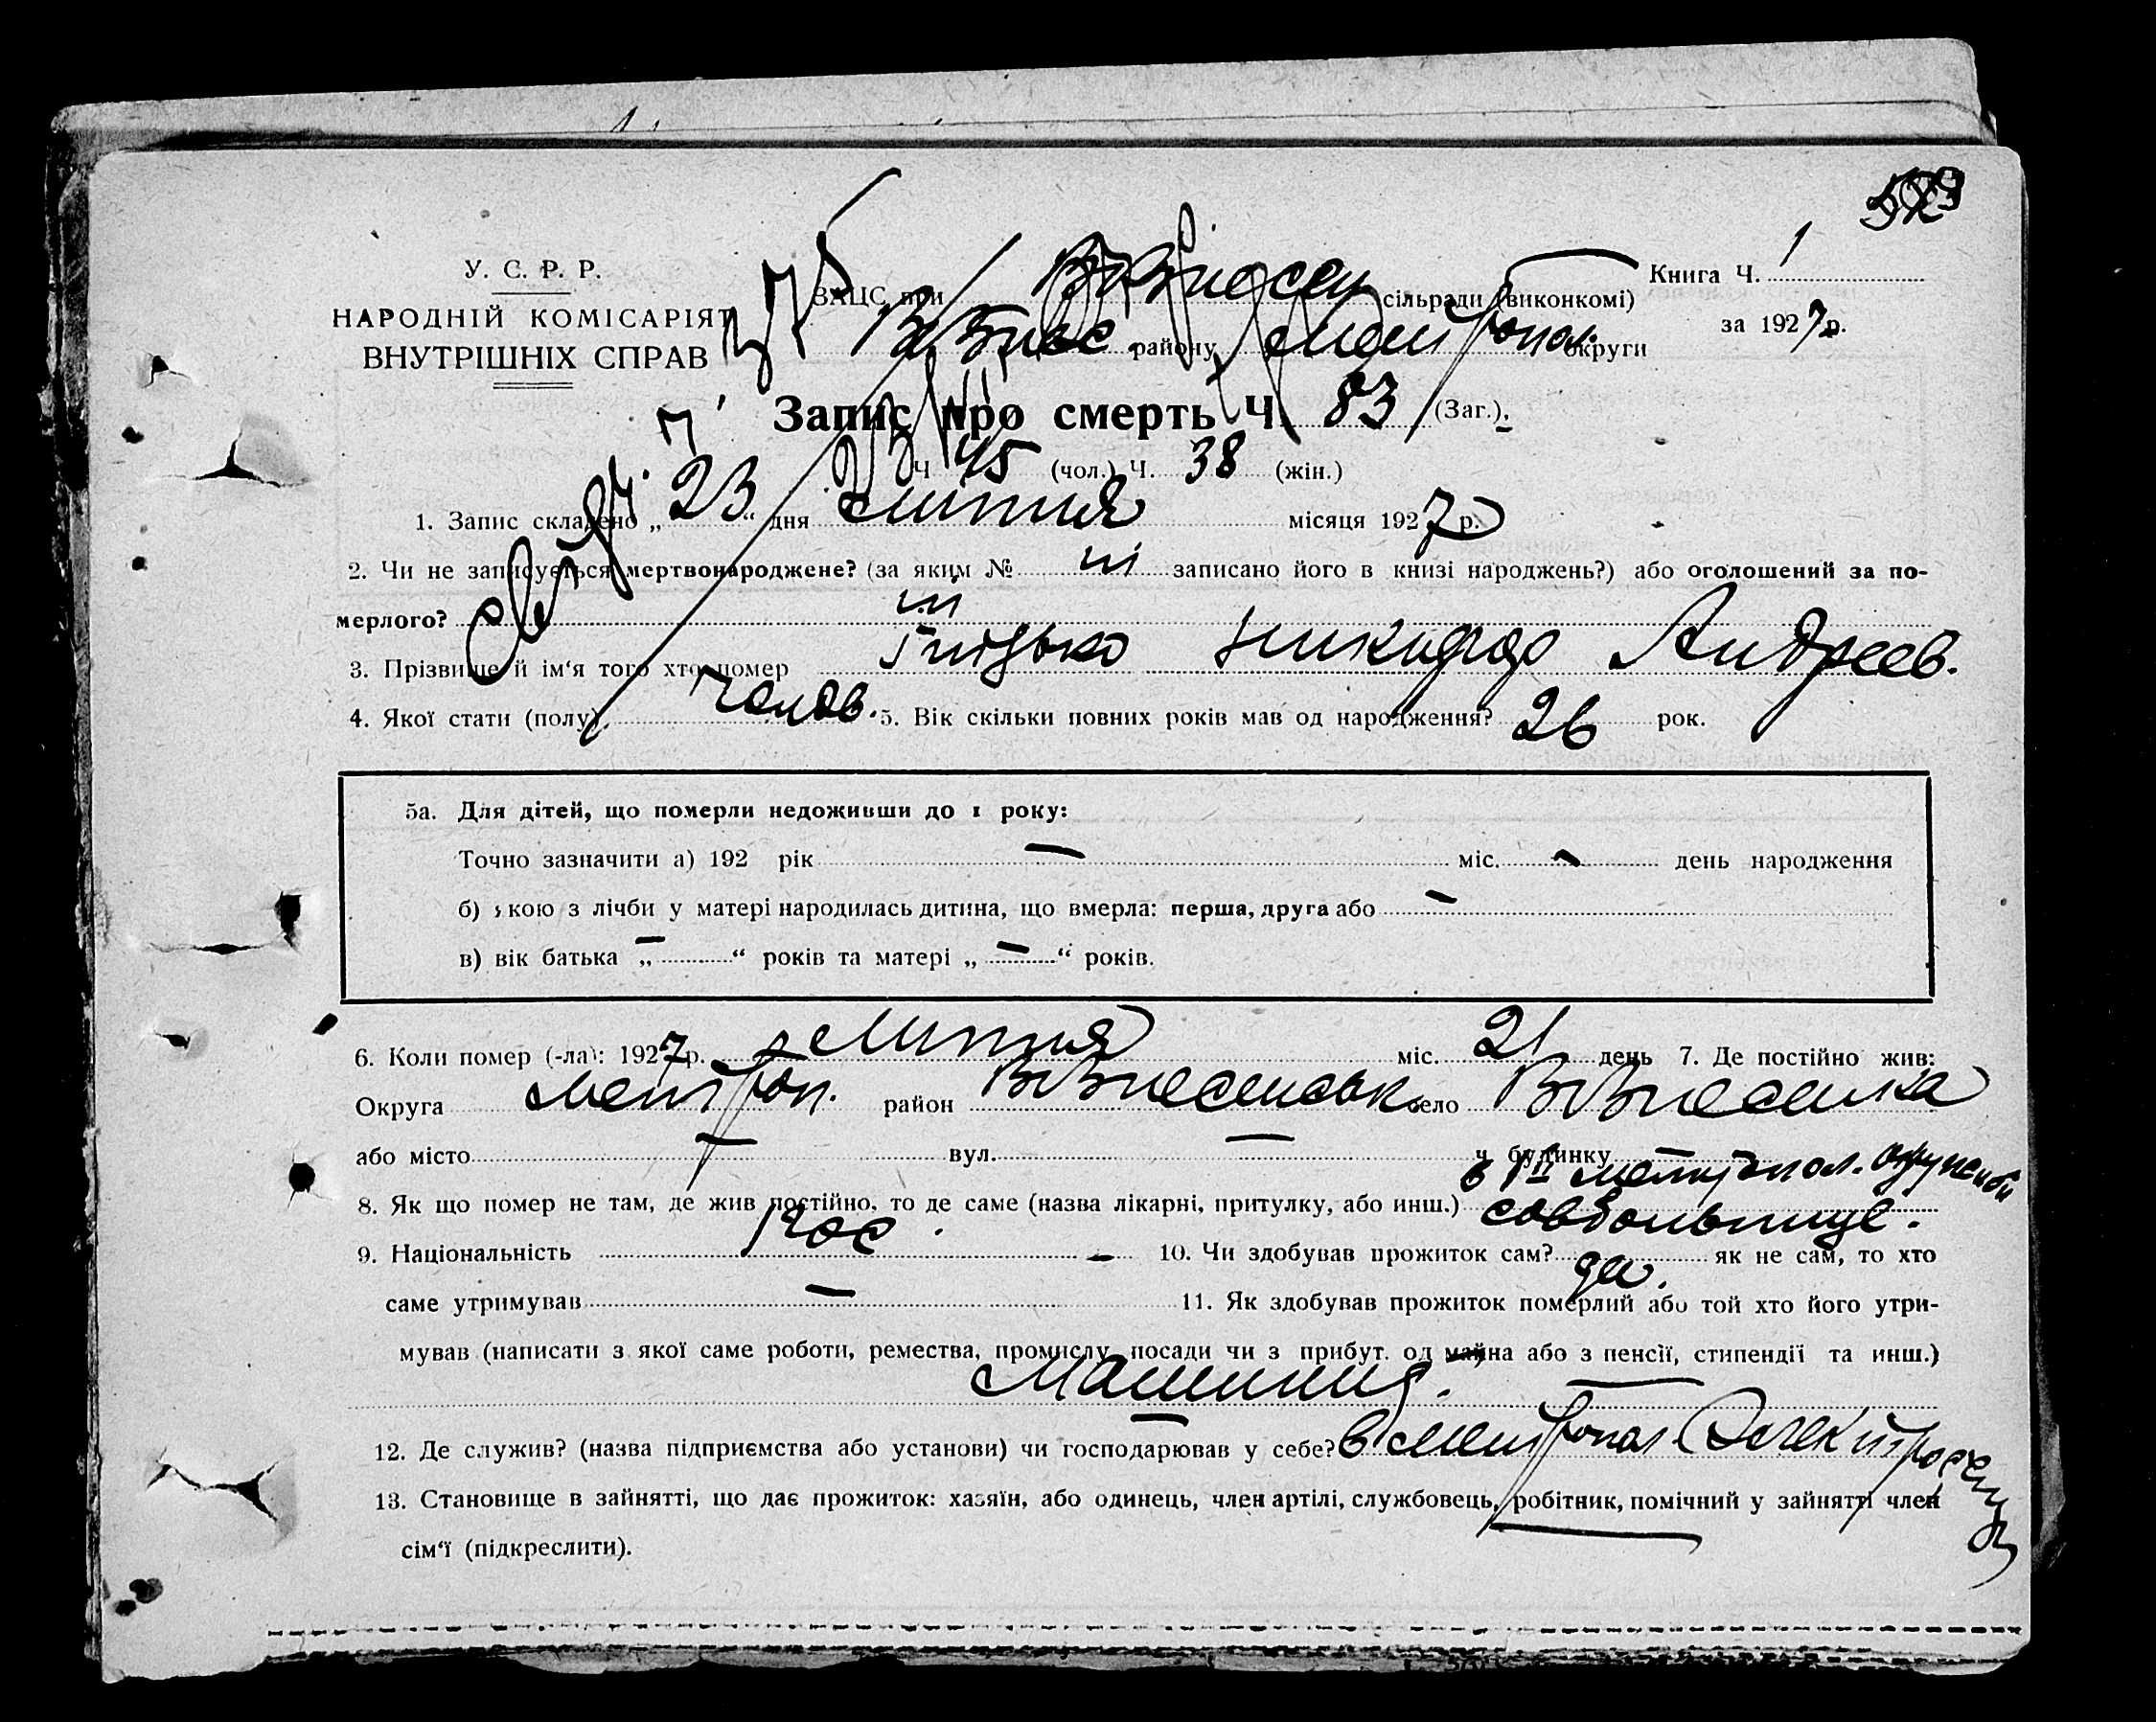 У. С. Р. Р.
НАРОДНІЙ КОМІСАРІЯТ
ВНУТРІШНІХ СПРАВ
ЗАЦС при Вознесен сільради (виконкомі)
Вознес району Мелітопол. округи
Книга Ч. 1
за 1927 р.
Запис про смерть Ч. 83 (Заг.).
Ч 45 (чол.) Ч. 38 (жін.)
1. Запис складено „ 23 “ дня Липня місяця 1927 р.
2. Чи не записується мертвонароджене? (за яким № ні записано його в книзі народжень?) або оголошений за по-
мерлого? ні
3. Прізвище й ім‘я того хто помер Никифор Андреев.
4. Якої стати (полу). Чолов. 5. Вік скільки повних років мав од народження? 26 рок.
5а. Для дітей, що померли недоживши до 1 року:
Точно зазначити а) 192 рік — міс. — день народження
б) якою з лічби у матері народилась дитина, що вмерла: перша, друга або —
в) вік батька „ — “ років та матері „ — “ років.
6. Коли помер (-ла): 1927 р. Липня міс. 21 день 7. Де постійно жив:
Округа Мелітоп. район Вознесенськ село Вознесенка
або місто — вул. — ч. будинку
8. Як що помер не там, де жив постійно, то де саме (назва лікарні, притулку, або инш.) в 1й Мелітопол. окружной
совбольнице.
9. Національність Рос. — 10. Чи здобував прожиток сам? да. як не сам, то хто
саме утримував — 11. Як здобував прожиток померлий або той хто його утри-
мував (написати з якої саме роботи, ремества, промислу, посади чи з прибут. од майна або з пенсії, стипендії та инш.)
12. Де служив? (назва підприємства або установи) чи господарював у себе? в Мелітопол. Электро
13. Становище в зайнятті, що дає прожиток: хазяїн, або одинець, член артілі, службовець, робітник, помічний у зайнятті член
сім‘ї (підкреслити).